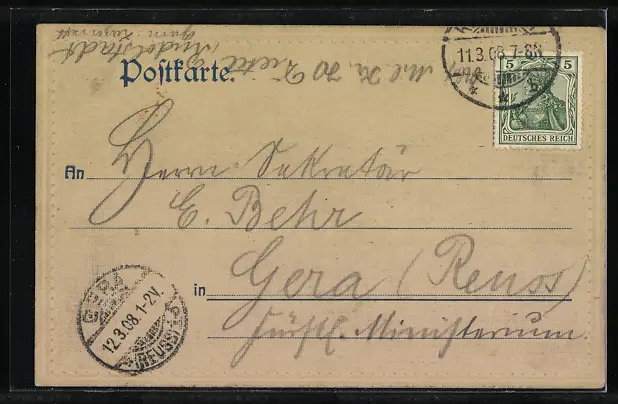 Rudolstadt
Postkarte.
11.3.08.7-8N
5 5
DEUTSCHES REICH
An Herrn Sekretär
E. Behr
in Gera (Reuss)
Fürstl. Ministerium.
GERA
12.3.08.1-2V.
(REUSS)